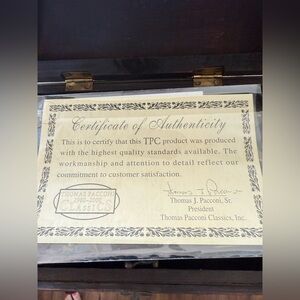 Certificate of Authenticity
This is to certify that this TPC product was produced
with the highest quality standards available. The
workmanship and attention to detail reflect our
commitment to customer satisfaction.
THOMAS PACCONI
CLASSICS
Thomas J. Pacconi, Sr.
President
Thomas Pacconi Classics, Inc.